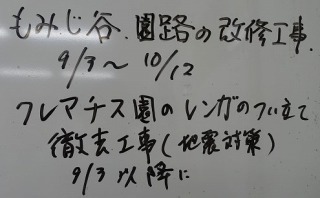 もみじ谷.園路の改修工事.
9/3〜10/12
クレマチス園のレンガのつい立て
徹去工事(地震対策)
9/3以降に